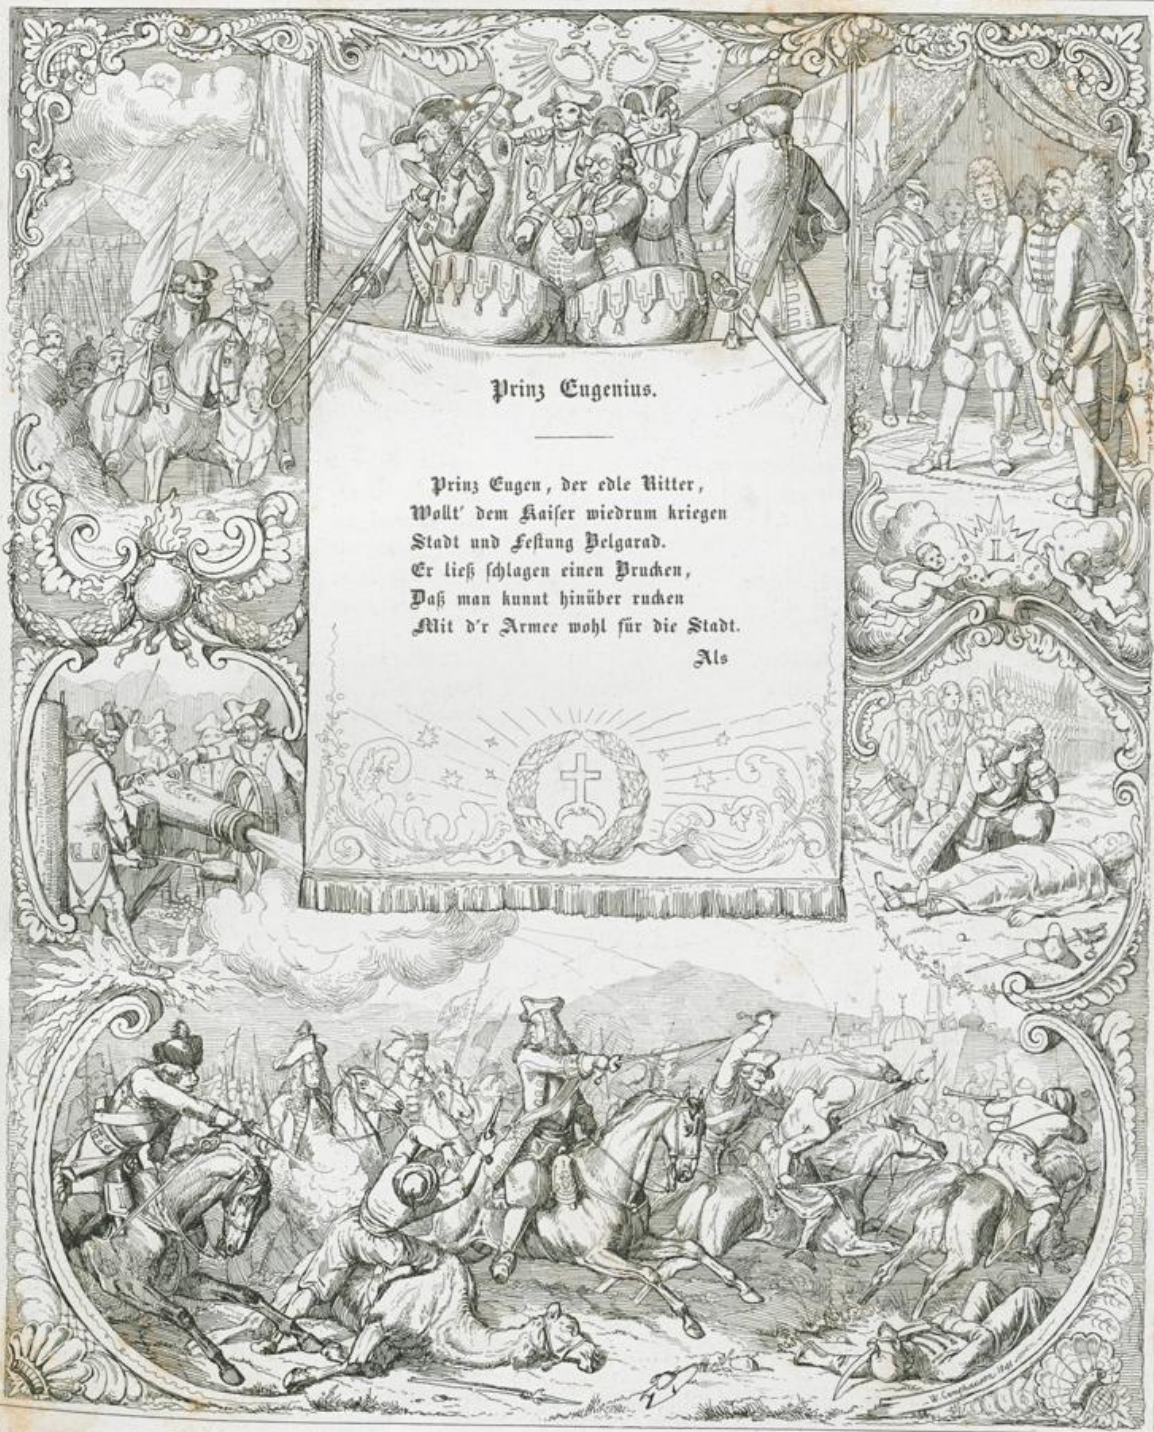 Prinz Eugenius.
Prinz Eugen, der edle Ritter,
Wollt' dem Kaiſer wiedrum kriegen
Stadt und Feſtung Belgarad.
Er ließ ſchlagen einen Brucken,
Daß man kunnt hinüber rucken
Mit d'r Armee wohl für die Stadt.
Als
L
W. Camphausen